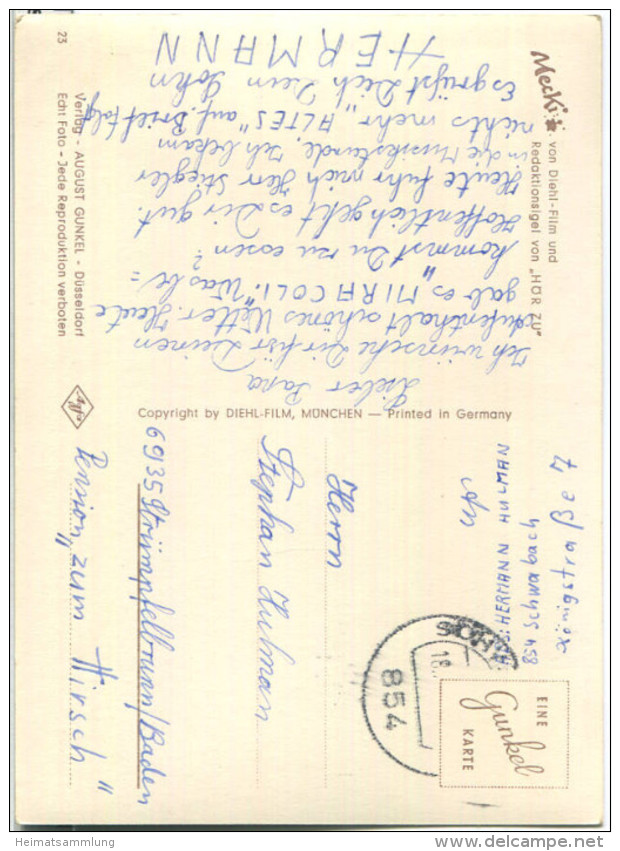 Mecki
von Diehl-Film und
Redaktionsigel von „HÖR ZU"
Lieber Papa
Ich wünsche Dir für Deinen
Aufenthalt schönes Wetter. Heute
gab es „MIRACOLI". Was be=
kommst Du zu essen?
Hoffentlich geht es Dir gut.
Heute fuhr mich Herr Stiegler
in die Musikstunde, Ich bekam
nichts mehr „ALTES" auf. Brief folgt
Es grüßt Dich Dein Sohn
HERMANN
23
Verlag - AUGUST GUNKEL - Düsseldorf
Echt Foto - Jede Reproduktion verboten
Agfa
Copyright by DIEHL-FILM, MÜNCHEN — Printed in Germany
HERMANN HULMAN
854 Schwabach
7
854
18.
EINE
Gunkel
KARTE
An
Herrn
Stephan Hulman
6935 Strümpfelbrunn/Baden
Pension „zum Hirsch"
Heimatsammlung
www.delcampe.net